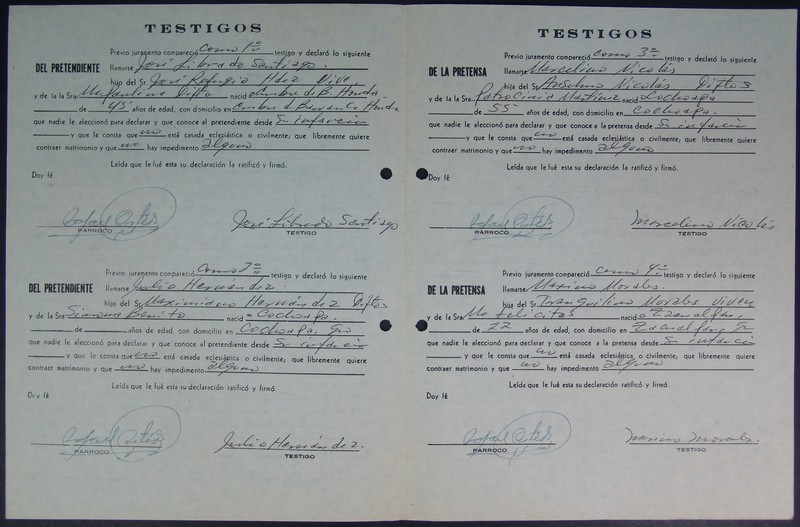 TESTIGOS
Previo juramento compareció Como 1º testigo y declaró lo siguiente
DEL PRETENDIENTE llamarse José Librado Santiago.
hijo del Sr. José Refugio Hdez Vive
y de la Sra. Ma Paulina Difta nació Cumbre de B. Honda
de 45 años de edad, con domicilio en Cumbre de Barranca Honda
que nadie le aleccionó para declarar y que conoce al pretendiente desde Su infancia
y que le consta que no está casada eclesiástica o civilmente; que libremente quiere
contraer matrimonio y que no hay impedimento alguno
Leída que le fué esta su declaración la ratificó y firmó.
Doy fé
Rafael
José Librado Santiago
PARROCO
TESTIGO
Previo juramento compareció Como 2º testigo y declaró lo siguiente
DEL PRETENDIENTE llamarse Julio Hernández.
hijo del Sr. Maximiano Hernández Diftos
y de la Sra. Simona Benito nació Cochoapa.
de años de edad, con domicilio en Cochoapa, Gro
que nadie le aleccionó para declarar y que conoce al pretendiente desde Su infancia
y que le consta que no está casada eclesiástica o civilmente; que libremente quiere
contraer matrimonio y que no hay impedimento alguno
Leída que le fué esta su declaración ratificó y firmó.
Doy fé
Rafael
Julio Hernández.
PARROCO
TESTIGO
TESTIGOS
Previo juramento compareció como 3º testigo y declaró lo siguiente
DE LA PRETENSA llamarse Marcelino Nicolás
hija del Sr. Anselmo Nicolás Diftos
y de la Sra. Patrocinia Martínez nació Cochoapa
de 55 años de edad, con domicilio en Cochoapa.
que nadie le aleccionó para declarar y que conoce a la pretensa desde Su infancia
y que le consta que no está casada, eclesiástica o civilmente; que libremente quiere
contraer matrimonio y que no hay impedimento alguno
Leída que le fué esta su declaración la ratificó y firmó.
Doy fé
Rafael
Marcelino Nicolás
PARROCO
TESTIGO
Previo juramento compareció como 4º testigo y declaró lo siguiente
DE LA PRETENSA llamarse Maximo Morales.
hija del Sr. Tranquilino Morales Viven
y de la Sra. Ma Felicitas nació
de 22 años de edad, con domicilio en
que nadie le aleccionó para declarar y que conoce a la pretensa desde Su infancia
y que le consta que no está casada, eclesiástica o civilmente; que libremente quiere
contraer matrimonio y que no hay impedimento alguno
Leída que le fué esta su declaración ratificó y firmó.
Doy fé
Rafael
Morales.
PARROCO
TESTIGO